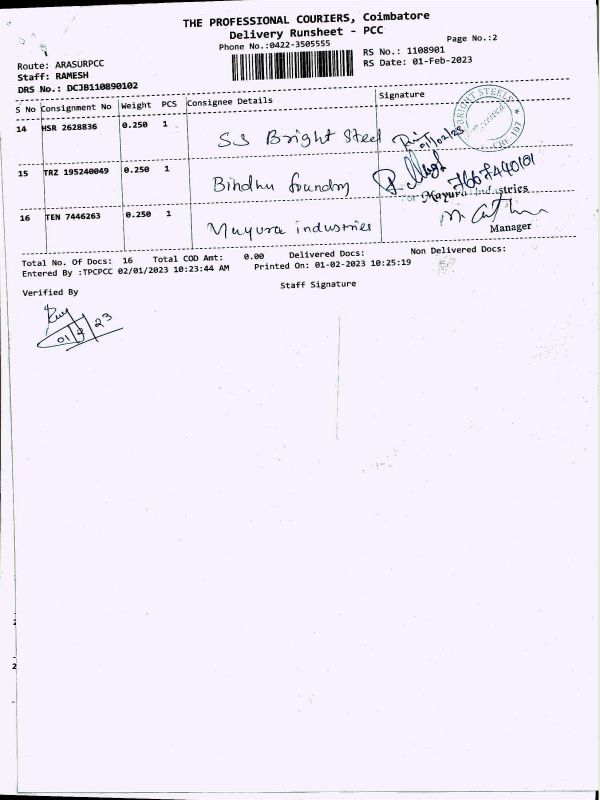 THE PROFESSIONAL COURIERS, Coimbatore
Delivery Runsheet - PCC
Phone No.:0422-3505555
Page No.:2
Route: ARASURPCC
RS No.: 1108901
Staff: RAMESH
RS Date: 01-Feb-2023
DRS No.: DCJB110890102
S No Consignment No Weight PCS Consignee Details Signature
14 HSR 2628836 0.250 1 SS Bright Steel 01/02/23
BRIGHT STEELS
15 TRZ 195240049 0.250 1 Bindhu foundry
For Mayura Industries
16 TEN 7446263 0.250 1 Mayura industries
Manager
Total No. Of Docs: 16 Total COD Amt: 0.00 Delivered Docs: Non Delivered Docs:
Entered By :TPCPCC 02/01/2023 10:23:44 AM Printed On: 01-02-2023 10:25:19
Verified By Staff Signature
01/2/23